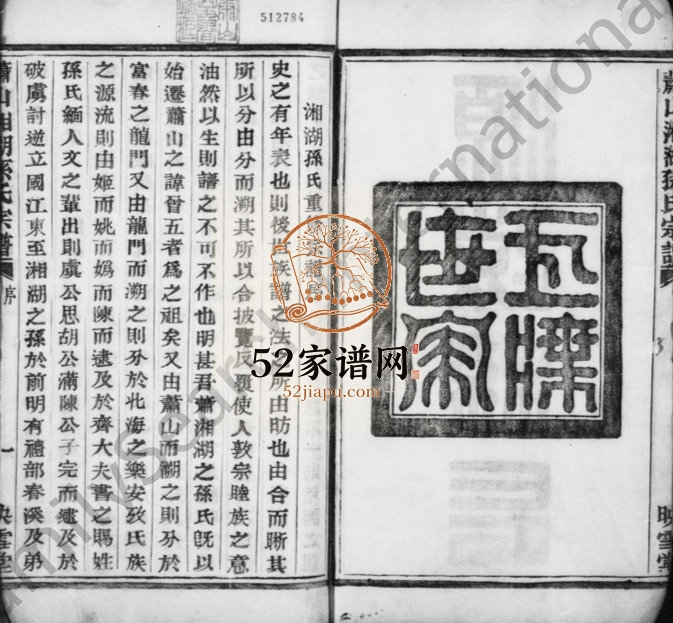 512784
蕭山湘湖孫氏宗譜
映雪堂
湘湖孫氏重修宗譜序
史之有年表也則後世族譜之法所由昉也由合而晰其
所以分由分而溯其所以合披覽反覆使人敦宗睦族之意
油然以生則譜之不可不作也明甚吾蕭湘湖之孫氏旣以
始遷蕭山之諱曾五者爲之祖矣又由蕭山而溯之則分於
富春之龍門又由龍門而溯之則分於北海之樂安攷氏族
之源流則由姬而姚而嬀而陳而逮及於齊大夫書之賜姓
孫氏緬人文之輩出則虞公思胡公滿陳公子完而逮及於
破虜討逆立國江東至湘湖之孫於前明有禮部春溪及弟
蕭山湘湖孫氏宗譜
序
一
映雪堂
52家谱网
52jiapu.com
FamilySearch International